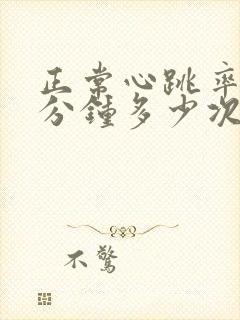 正常心跳率
分鐘多少次
不驚